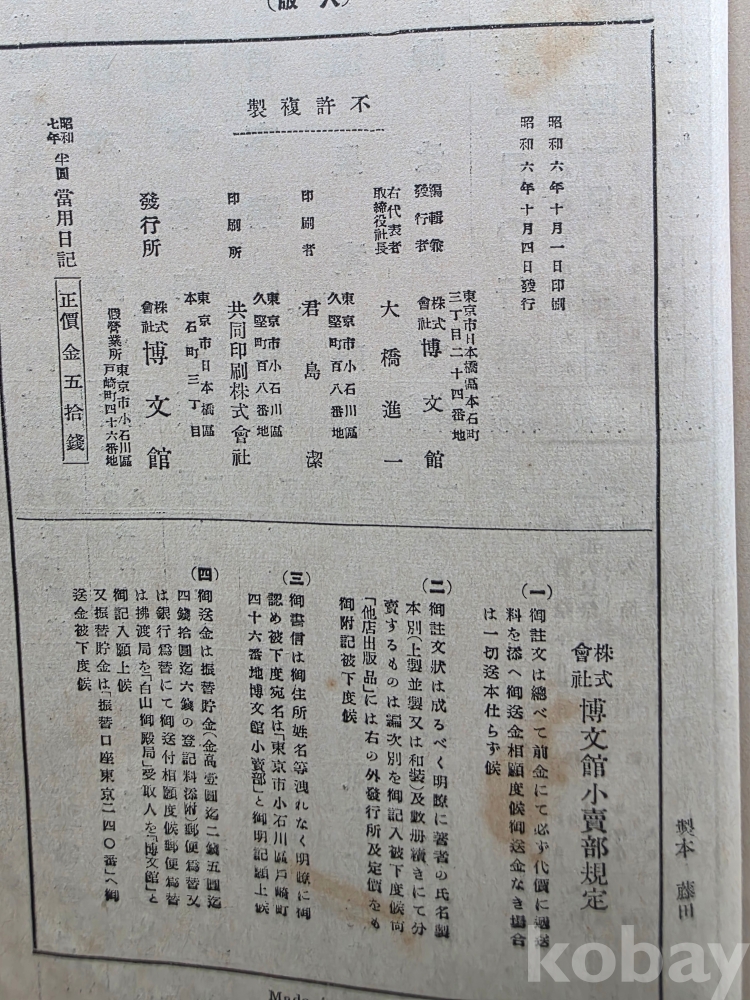 (入版)
不許複製
昭和六年十月一日印刷
昭和六年十月四日發行
編輯兼
發行者
東京市日本橋區本石町
三丁目二十四番地
株式
會社
博文館
右代表者
取締役社長
大橋進一
印刷者
東京市小石川區
久堅町百八番地
君島潔
印刷所
東京市小石川區
久堅町百八番地
共同印刷株式會社
發行所
東京市日本橋區
本石町三丁目
株式
會社
博文館
假營業所
東京市小石川區
戸崎町四十六番地
昭和
七年
半圓
當用日記
正價金五拾錢
株式
會社
博文館小賣部規定
(一)御註文は總べて前金にて必ず代價に遞送
料を添へ御送金相願度候御送金なき場合
は一切送本仕らず候
(二)御註文狀は成るべく明瞭に著者の氏名製
本別(上製並製又は和裝)及數册續きにて分
賣するものは論次別を御記入被下度候尙
「他店出版品」には右の外發行所及定價をも
御附記被下度候
(三)御書信は御住所姓名等洩れなく明瞭に御
認め被下度宛名は「東京市小石川區戸崎町
四十六番地博文館小賣部」と御明記願上候
(四)御送金は振替貯金(金高壹圓迄二錢五圓迄
四錢拾圓迄六錢の登記料添附郵便爲替又
は銀行爲替にて御送付相願度候郵便爲替
は拂渡局を「白山御殿局」受取人を「博文館」と
御記入願上候
又振替貯金は「振替口座東京二四〇番」へ御
送金被下度候
製本
kobay